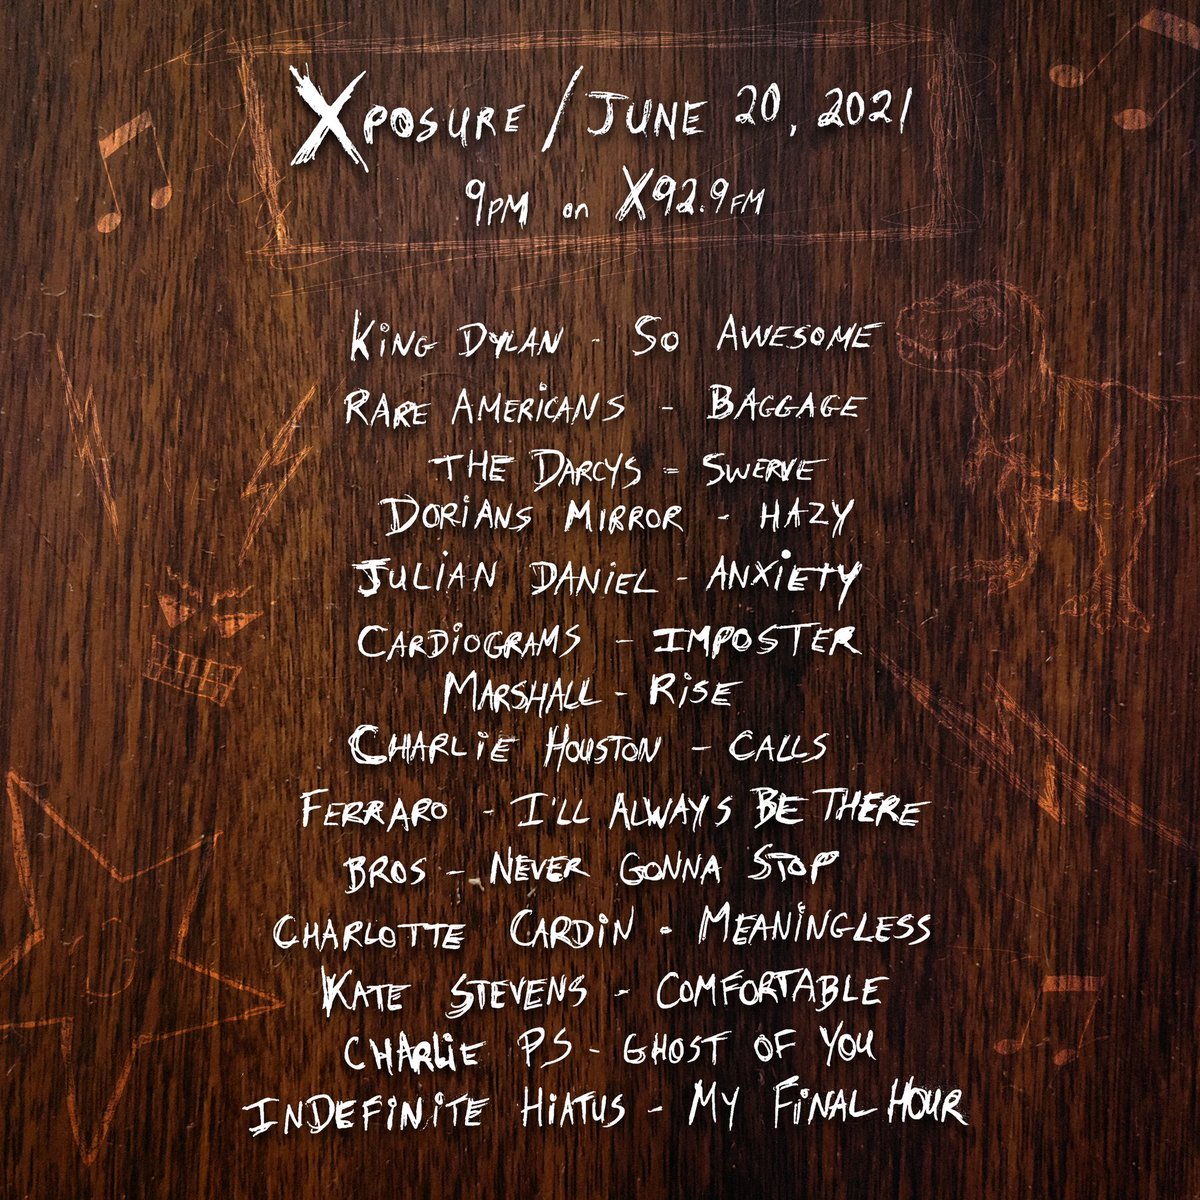 XPOSURE / JUNE 20, 2021
9PM on X92.9FM
KING DYLAN - SO AWESOME
RARE AMERICANS - BAGGAGE
THE DARCYS = SWERVE
DORIANS MIRROR - HAZY
JULIAN DANIEL - ANXIETY
CARDIOGRAMS - IMPOSTER
MARSHALL - RISE
CHARLIE HOUSTON - CALLS
FERRARO - I'LL ALWAYS BE THERE
BROS - NEVER GONNA STOP
CHARLOTTE CARDIN - MEANINGLESS
KATE STEVENS - COMFORTABLE
CHARLIE PS - GHOST OF YOU
INDEFINITE HIATUS - MY FINAL HOUR